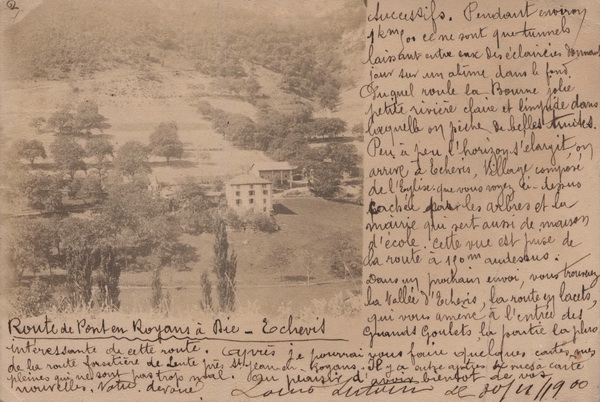 successifs. Pendant environ
1 km 500 ce ne sont que tunnels
laissant entre eux des éclaircies donnant
jour sur un abîme dans le fond
duquel roule la Bourne jolie
petite rivière claire et limpide dans
laquelle on pêche de belles truites.
Peu à peu l'horizon s'élargit, on
arrive à Echevis, Village composé
de l'Eglise que vous voyez ci-dessus
cachée par les arbres et la
mairie qui sert aussi de maison
d'école. Cette vue est prise de
la route à 150m au dessus.
Dans un prochain envoi, vous trouverez
la Vallée d'Echevis, la route en lacets,
qui vous amène à l'entrée des
Grands Goulets la partie la plus
Route de Pont en Royans à Die - Echevis
intéressante de cette route. Après je pourrai vous faire quelques cartes vues
de la route forestière de Lente près St Jean en Royans. Il y a entre autres
pleines qui ne sont pas trop mal. Au plaisir d'avoir bientôt de vos
nouvelles. Votre dévoué
Louis